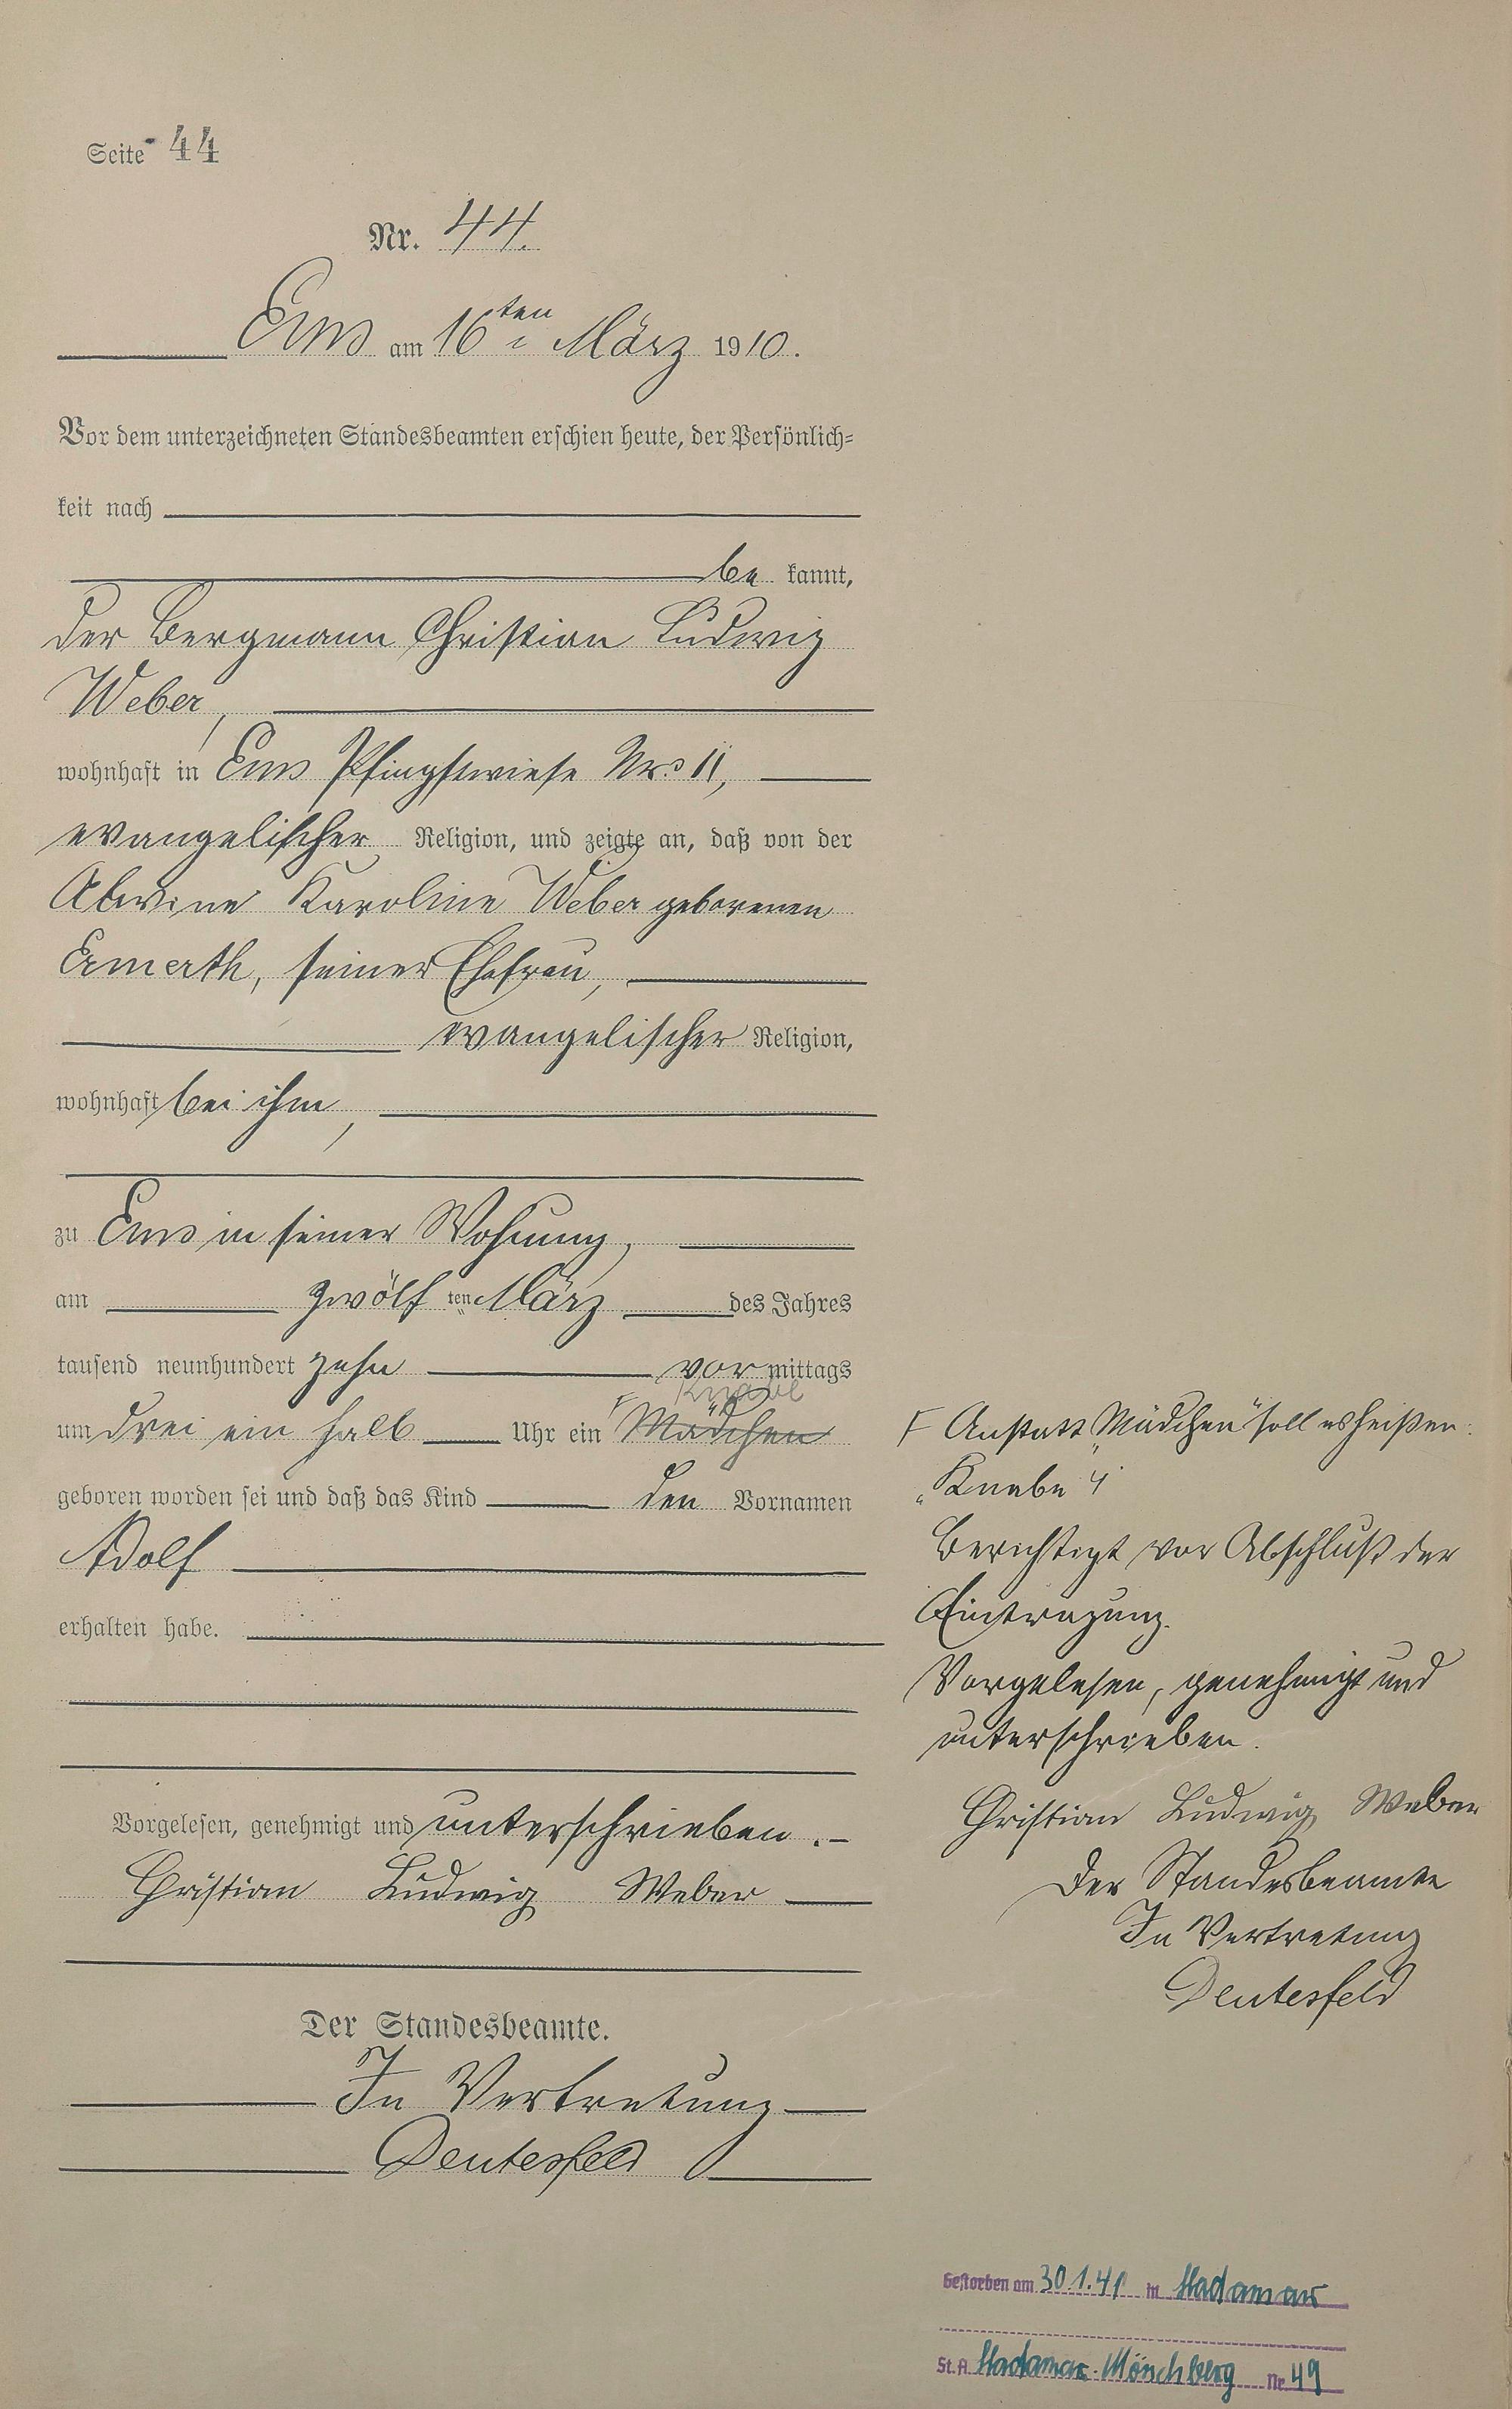 Seite 44
Nr. 44.
Ems am 16ten März 1910.
Vor dem unterzeichneten Standesbeamten erschien heute, der Persönlich-
keit nach
be kannt,
der Bergmann Christian Ludwig
Weber,
wohnhaft in Ems Pfingstwiese Nro 11,
evangelischer Religion, und zeigte an, daß von der
Alwine Karoline Weber geborenen
Ermerth, seiner Ehefrau,
evangelischer Religion,
wohnhaft bei ihm,
zu Ems in seiner Wohnung,
am zwölf ten März des Jahres
tausend neunhundert zehn vor mittags
Knabe
um drei ein halb Uhr ein Mädchen
geboren worden sei und daß das Kind den Vornamen
Adolf
erhalten habe.
Vorgelesen, genehmigt und unterschrieben.-
Christian Ludwig Weber
Der Standesbeamte.
In Vertretung
Deutesfeld
Anstatt „Mädchen" soll es heißen:
„Knabe"
Berichtigt vor Abschluß der
Eintragung.
Vorgelesen, genehmigt und
unterschrieben.
Christian Ludwig Weber
Der Standesbeamte
In Vertretung
Deutesfeld
Gestorben am 30.1.41 in Hadamar
St. A. Hadamar-Mönchberg Nr 49